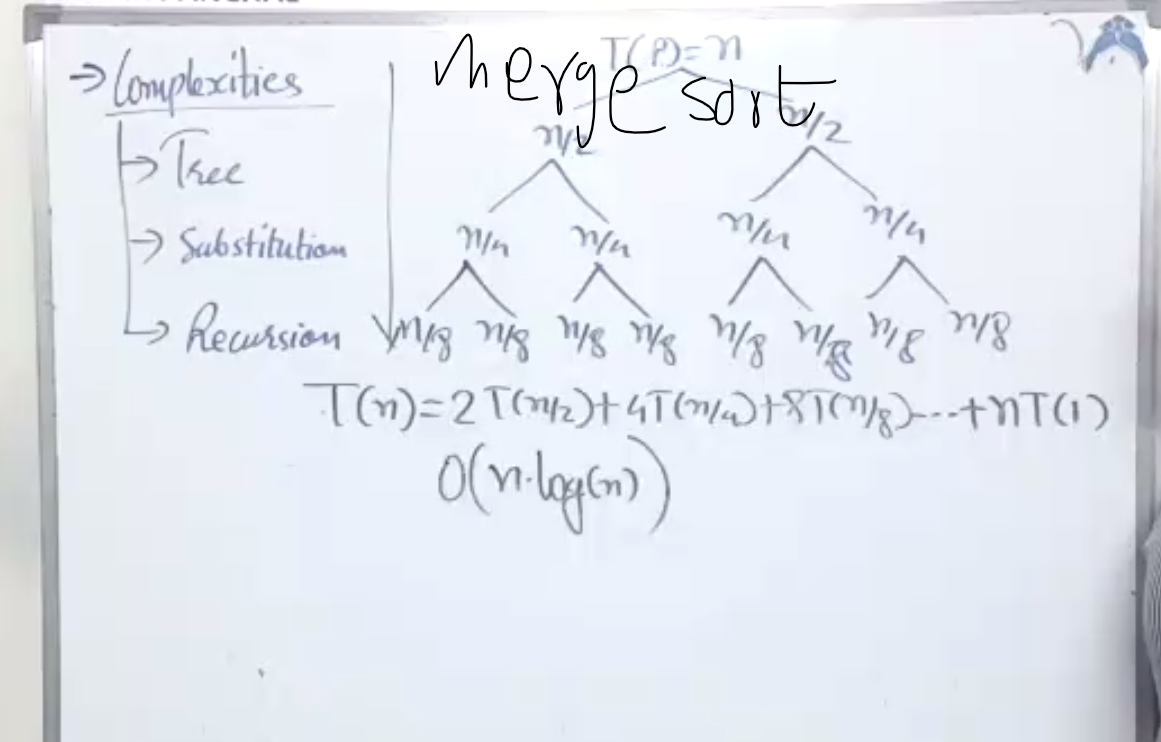 → Complexities
→ Tree
→ Substitution
→ Recursion
merge sort
T(8)=n
n/2 n/2
n/4 n/4 n/4 n/4
n/8 n/8 n/8 n/8 n/8 n/8 n/8 n/8
T(n)=2T(n/2)+4T(n/4)+8T(n/8)---+nT(1)
O(n·log(n))